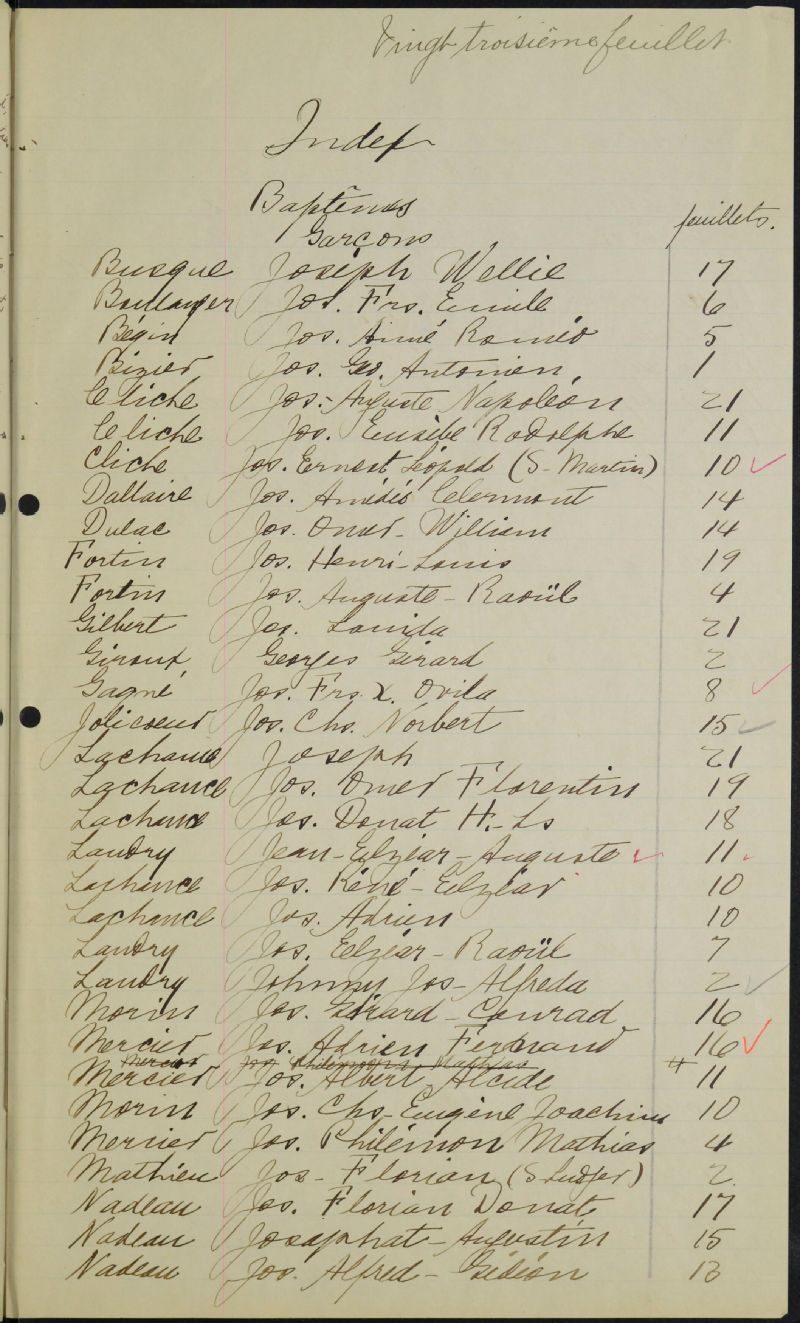 Vingt troisième feuillet
Index
Baptêmes
Garçons
feuillets.
Busque Joseph Wellie 17
Boulanger Jos. Frs. Emile 6
Bégin Jos. Aimé Roméo 5
Bizier Jos. Geo. Antonien, 1
Cliche Jos. Auguste Napoléon 21
Cliche Jos. Eusèbe Rodolphe 11
Cliche Jos. Ernest Léopold (S. Martin) 10
Dallaire Jos. Amédé Clermont 14
Dulac Jos. Omer-William 14
Fortin Jos. Henri-Louis 19
Fortin Jos. Auguste-Raoül 4
Gilbert Jos. Lauida 21
Giroux Georges Gérard 2
Gagné Jos. Frs. X. Ovila 8
Jolicoeur Jos. Chs. Norbert 15
Lachance Joseph 21
Lachance Jos. Omer Florentin 19
Lachance Jos. Donat H.-Ls 18
Landry Jean-Elzéar-Auguste 11
Lachance Jos. Réné-Elzéar 10
Lachance Jos. Adrien 10
Landry Jos. Elzéar-Raoül 7
Landry Johnny Jos-Alfreda 2
Morin Jos. Gérard-Conrad 16
Mercier Jos. Adrien Fernand 16
Mercier Jos. Philémon Mathias 4
Mercier Jos. Albert Alcide 11
Morin Jos. Chs-Eugène Joachim 10
Mercier Jos. Philémon Mathias 4
Mathieu Jos-Florian (S Ludger) 2
Nadeau Jos. Florian Donat 17
Nadeau Josaphat-Augustin 15
Nadeau Jos. Alfred-Gédéon 13